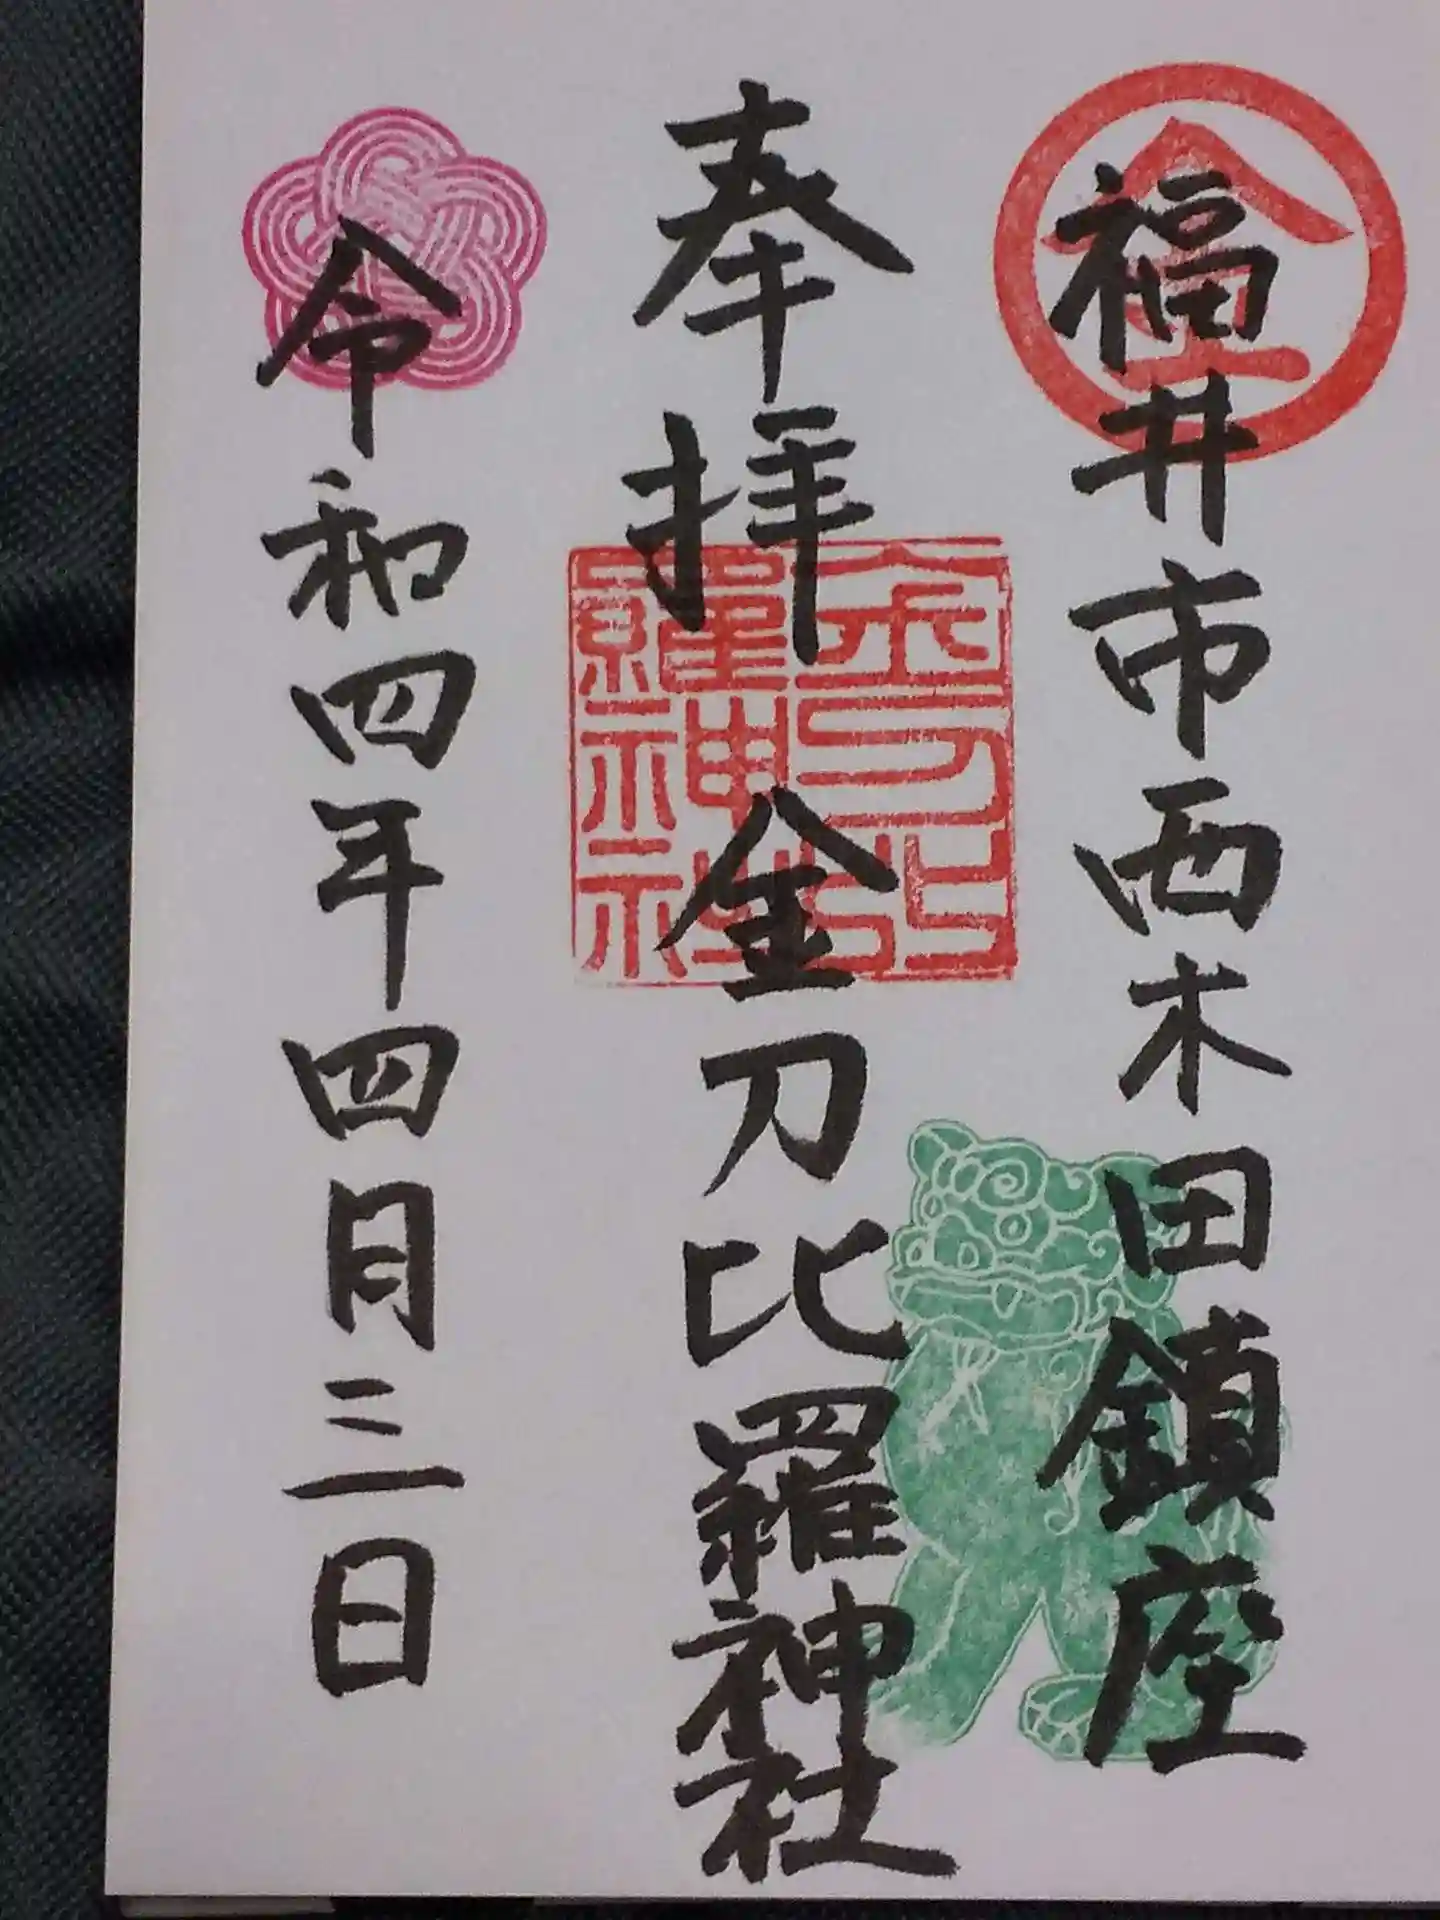 福井市西木田鎮座
金
奉拝 金刀比羅神社
金刀比羅神社
令和四年四月三日